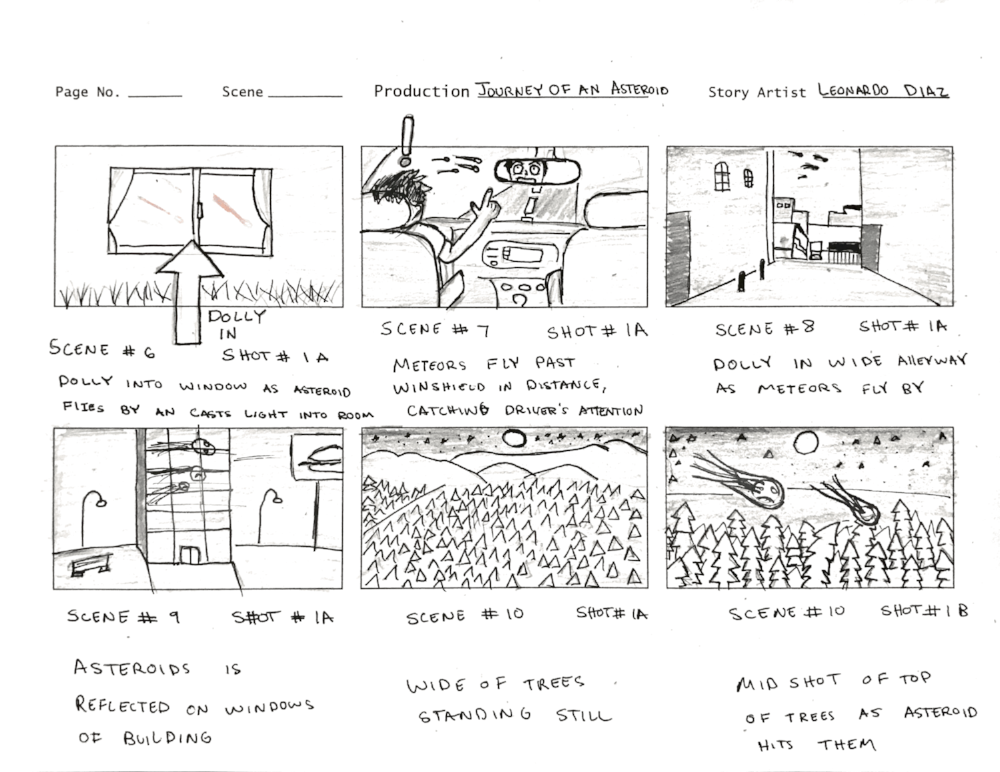 Page No. Scene Production JOURNEY OF AN ASTEROID Story Artist LEONARDO DIAZ
!
DOLLY
IN
SCENE # 6 SHOT # 1A
DOLLY INTO WINDOW AS ASTEROID
FLIES BY AN CASTS LIGHT INTO ROOM
SCENE # 7 SHOT # 1A
METEORS FLY PAST
WINSHIELD IN DISTANCE,
CATCHING DRIVER'S ATTENTION
SCENE # 8 SHOT # 1A
DOLLY IN WIDE AllEYWAY
AS METEORS FLY BY
SCENE # 9 SHOT # 1A
ASTEROIDS IS
REFLECTED ON WINDOWS
OF BUILDING
SCENE # 10 SHOT # 1A
WIDE OF TREES
STANDING STILL
SCENE # 10 SHOT # 1B
MID SHOT OF TOP
OF TREES AS ASTEROID
HITS THEM